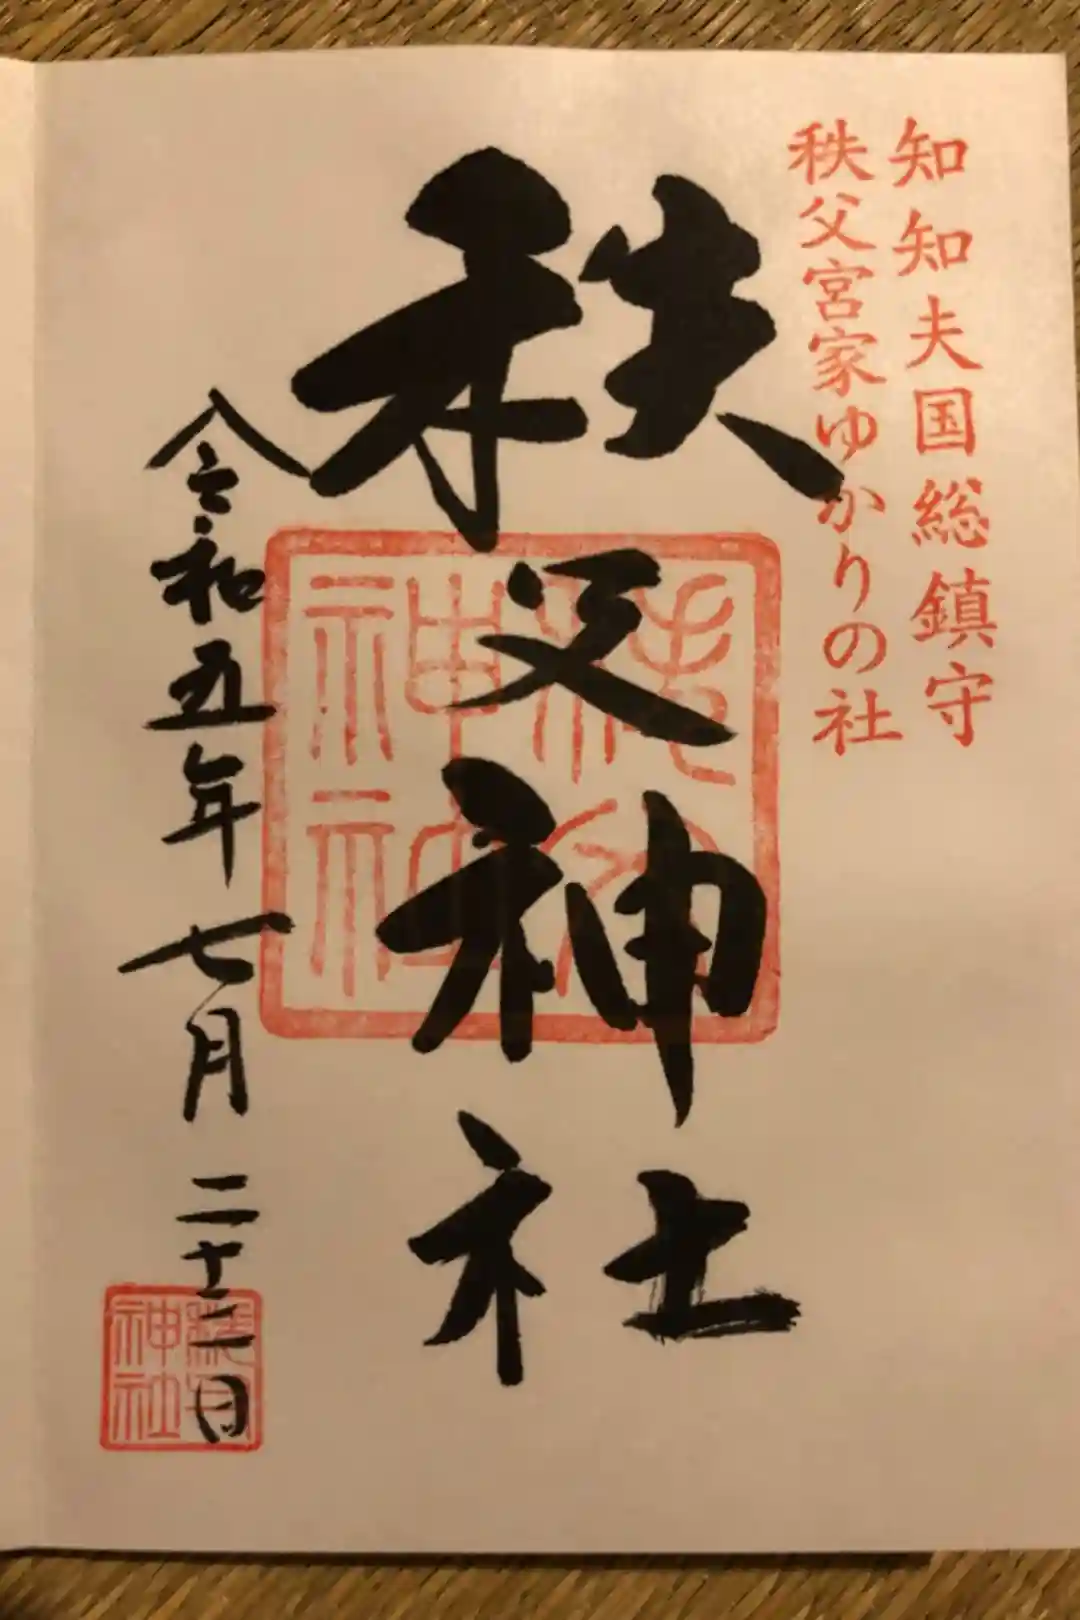 知知夫国総鎮守
秩父宮家ゆかりの社
秩父神社
令和五年七月二十二日
秩父神社
秩父神社